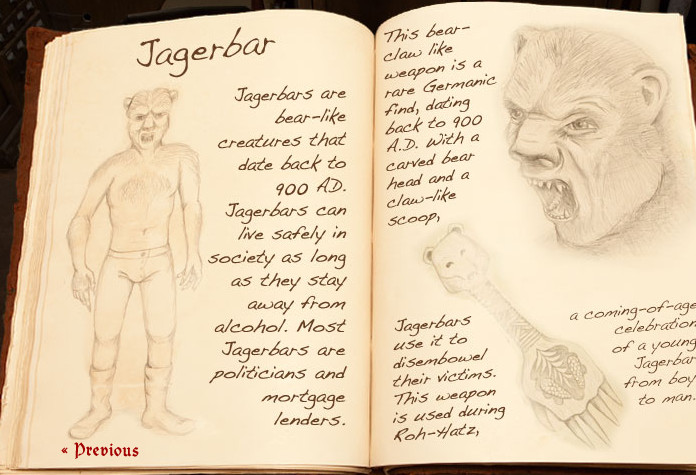 Jagerbar
Jagerbars are
bear-like
creatures that
date back to
900 AD.
Jagerbars can
live safely in
society as long
as they stay
away from
alcohol. Most
Jagerbars are
politicians and
mortgage
lenders.
« Previous
This bear-
claw like
weapon is a
rare Germanic
find, dating
back to 900
A.D. With a
carved bear
head and a
claw-like
scoop,
Jagerbars
use it to
disembowel
their victims.
This weapon
is used during
Roh-Hatz,
a coming-of-age
celebration
of a young
Jagerbar
from boy
to man.